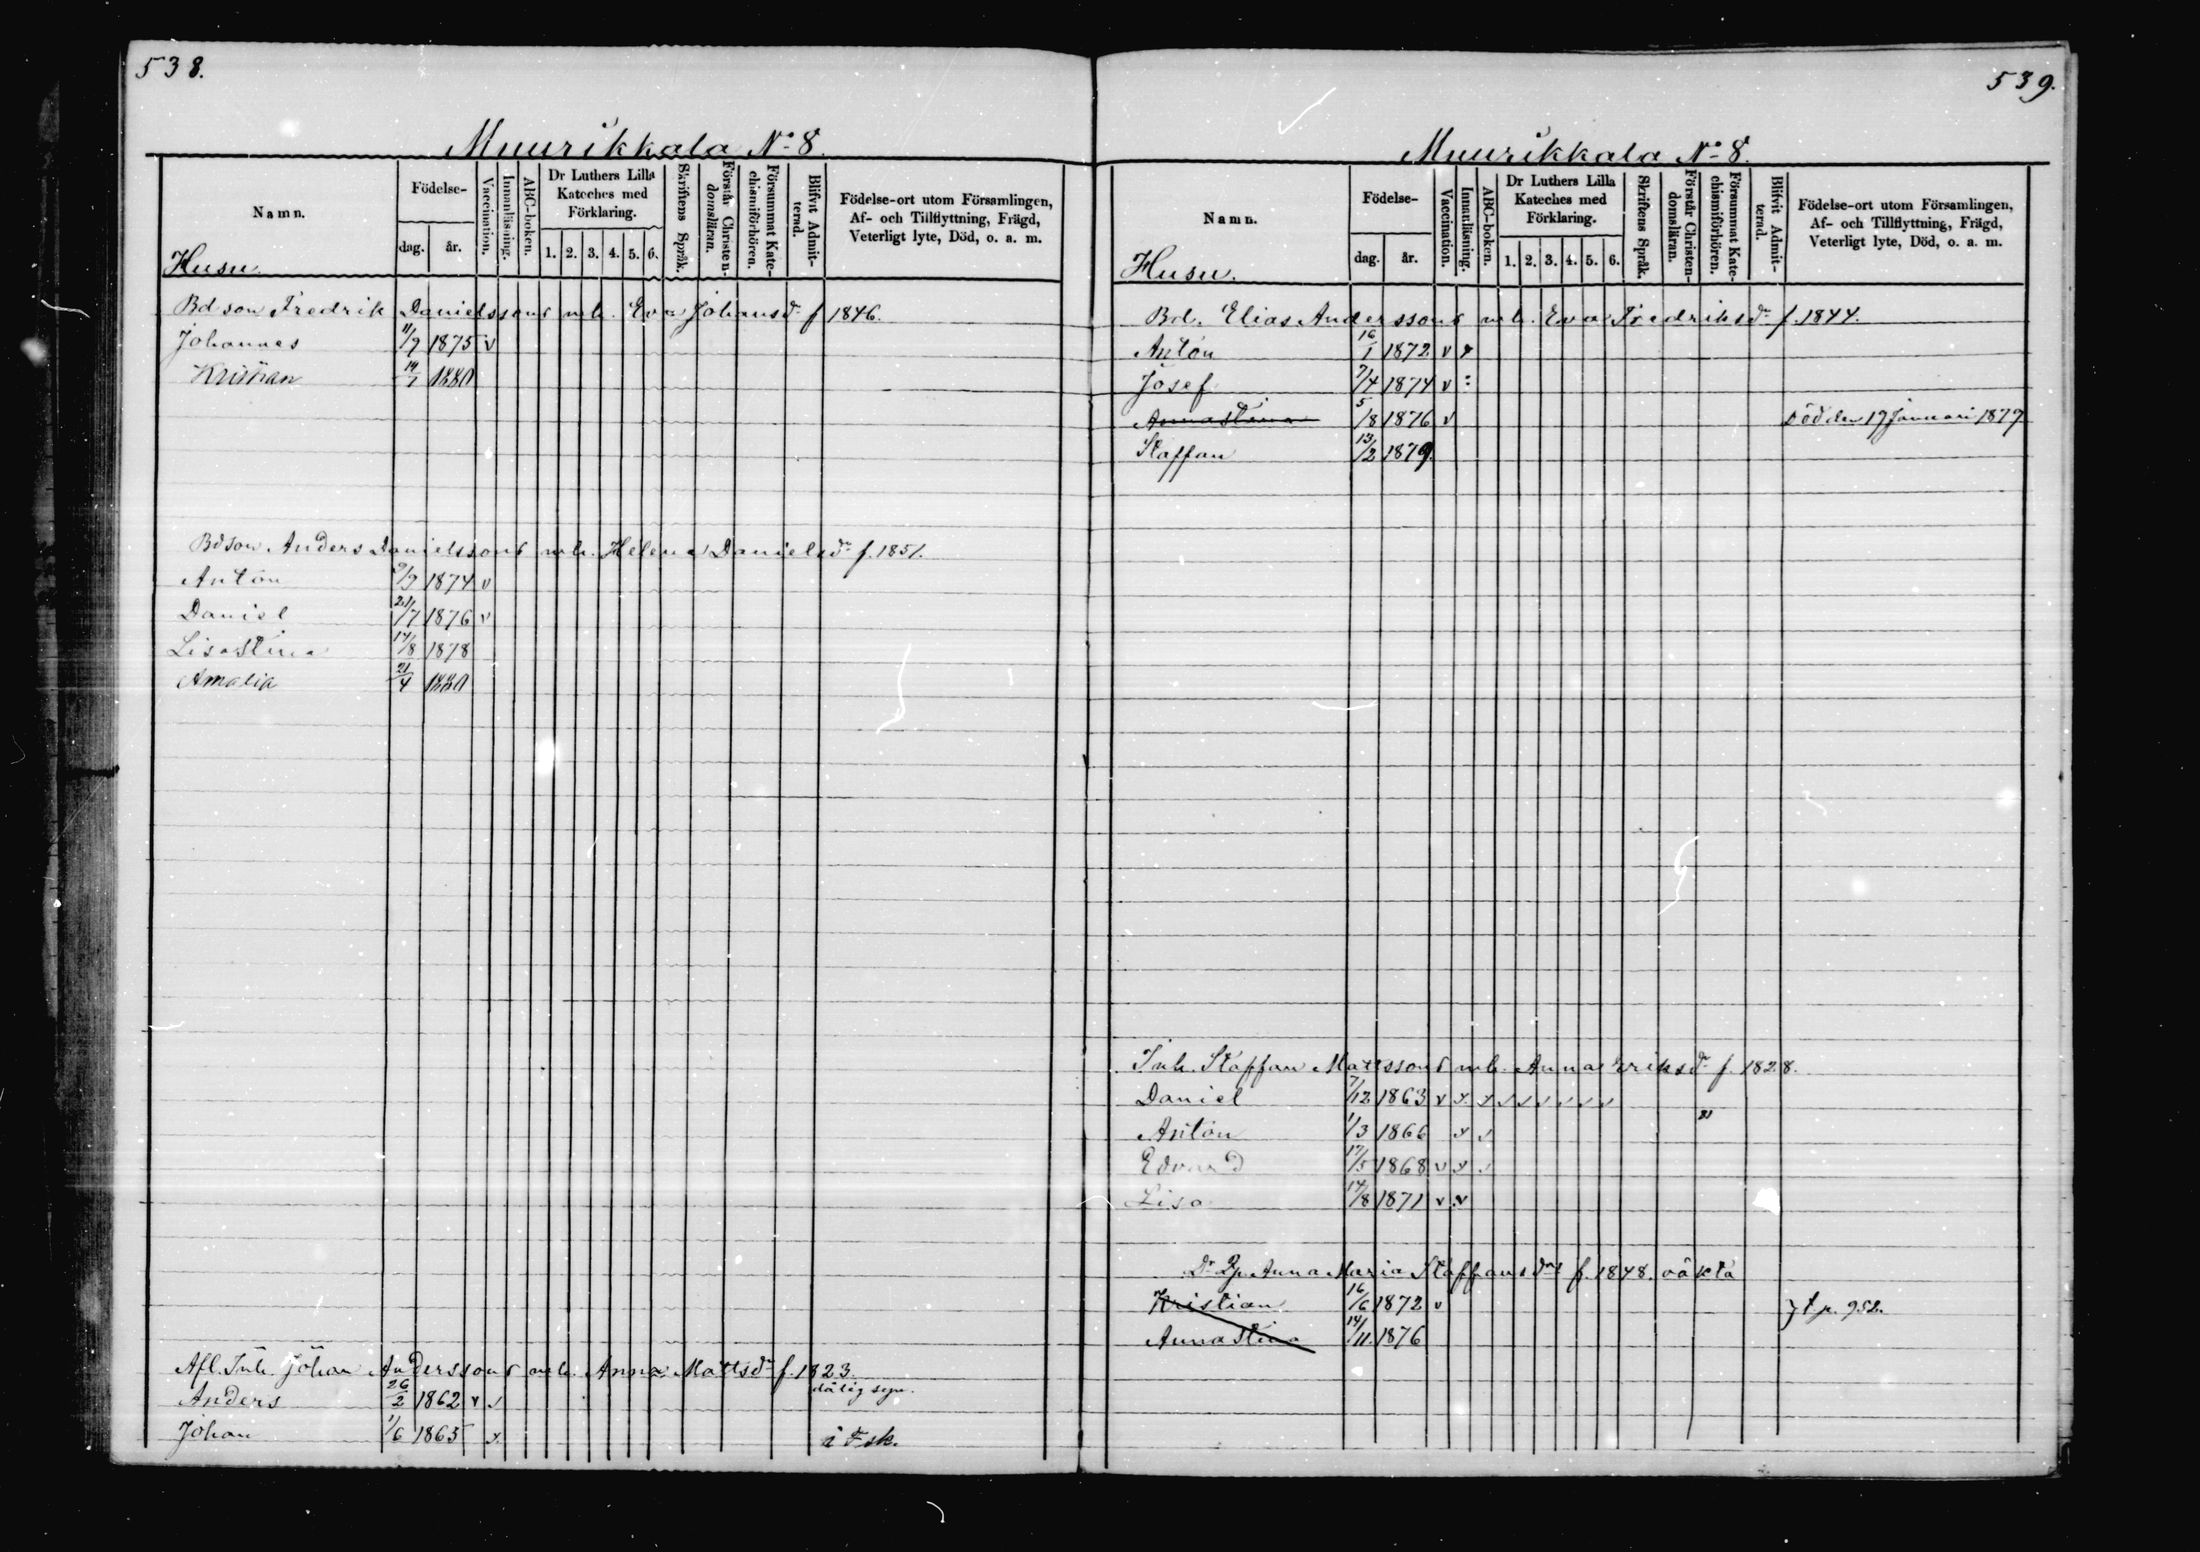 538.
Muurikkala No 8.
Namn.
Husu.
Födelse-
dag. år.
Vaccination.
Innanläsning.
ABC-boken.
Dr Luthers Lilla
Kateches med
Förklaring.
1. 2. 3. 4. 5. 6.
Skriftens Språk.
Förstår Christen-
domsläran.
Försummat Kate-
chismiförhören.
Blifvit Admit-
terad.
Födelse-ort utom Församlingen,
Af- och Tillflyttning, Frägd,
Veterligt lyte, Död, o. a. m.
Bdson Fredrik Danielssons mh. Eva Johansdr f 1846.
Johannes 11/9 1875 v
Kristian 14/7 1880
Bdson Anders Danielssons mh. Helena Danielsdr f. 1851.
Anton 9/9 1874 v
Daniel 1876 v
Lisa Stina 17/8 1878
Amalia 21/4 1880
Afl. Inh. Johan Anderssons mh. Anna Mattsdr f. 1823.
dålig syn.
Anders 26/2 1862 v v
Johan 1/6 1865 x. i Fsk.
539.
Muurikkala No 8.
Namn.
Husu.
Födelse-
dag. år.
Vaccination.
Innanläsning.
ABC-boken.
Dr Luthers Lilla
Kateches med
Förklaring.
1. 2. 3. 4. 5. 6.
Skriftens Språk.
Förstår Christen-
domsläran.
Försummat Kate-
chismiförhören.
Blifvit Admit-
terad.
Födelse-ort utom Församlingen,
Af- och Tillflyttning, Frägd,
Veterligt lyte, Död, o. a. m.
Bd. Elias Anderssons mh. Eva Fredriksdr f. 1844.
Anton 16/1 1872 v
Josef 7/4 1874 v
Anna Stina 5/8 1876 v Död den 17 Januari 1879
Staffan 13/2 1879.
Inh. Staffan Matssons mh. Anna Eriksdr f. 1828.
Daniel 7/12 1863 v x x
Anton 1/3 1866 x 81
Edvard 17/5 1868 v x
Lisa 14/8 1871 v v
Dr Pj. Anna Maria Staffansdrs f. 1848. oäkta
Kristian 16/6 1872 v } t p. 952.
Anna Stina 14/11 1876